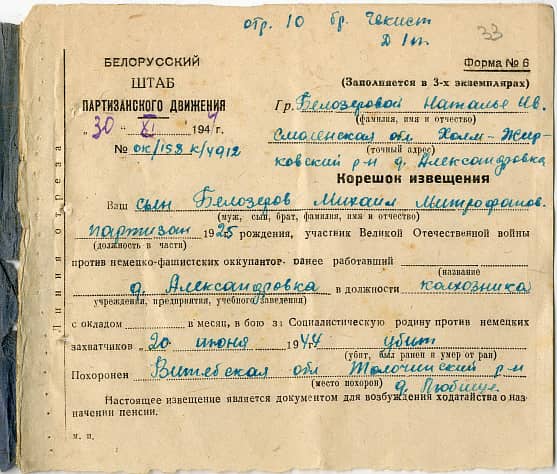 отр. 10 бр. Чекист
Д 1т.
33
БЕЛОРУССКИЙ
ШТАБ
ПАРТИЗАНСКОГО ДВИЖЕНИЯ
"30" XI 1944 г.
№ ок/158 к/4912
Линия отреза
Форма № 6
(Заполняется в 3-х экземплярах)
Гр. Белозеровой Наталье Ив.
(фамилия, имя и отчество)
Смоленская обл Холм-Жир-
(точный адрес)
ковский р-н д. Александровка
Корешок извещения
Ваш сын Белозеров Михаил Митрофанов.
(муж, сын, брат, фамилия, имя и отчество)
партизан 1925 рождения, участник Великой Отечественной войны
(должность в части)
против немецко-фашистских оккупантов ранее работавший
(название)
д. Александровка в должности колхозника
учреждения, предприятия, учебного заведения)
с окладом в месяц, в бою за Социалистическую родину против немецких
захватчиков "20 июня 1944 убит
(убит, был ранен и умер от ран)
Похоронен Витебская обл Толочинский р-н
(место похорон)
д. Любище
Настоящее извещение является документом для возбуждения ходатайства о на-
значении пенсии.
м. п.